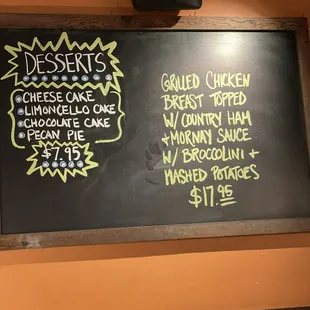 DESSERTS
CHEESE CAKE
LIMONCELLO CAKE
CHOCOLATE CAKE
PECAN PIE
$7.95
GRILLED CHICKEN
BREAST TOPPED
W/ COUNTRY HAM
+ MORNAY SAUCE
W/ BROCCOLINI +
MASHED POTATOES
$17.95